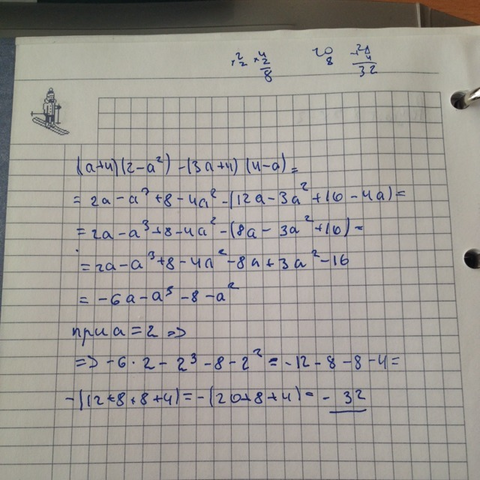 .2/2 .4/2/8 20/8 +28/4/32
(a+4)(2-a²)-(3a+4)(4-a)=
= 2a-a³+8-4a²-(12a-3a²+16-4a)=
= 2a-a³+8-4a²-(8a-3a²+16)=
= 2a-a³+8-4a²-8a+3a²-16
= -6a-a³-8-a²
при a=2 =>
=> -6·2-2³-8-2² = -12-8-8-4=
-(12+8+8+4)=-(20+8+4)=-32